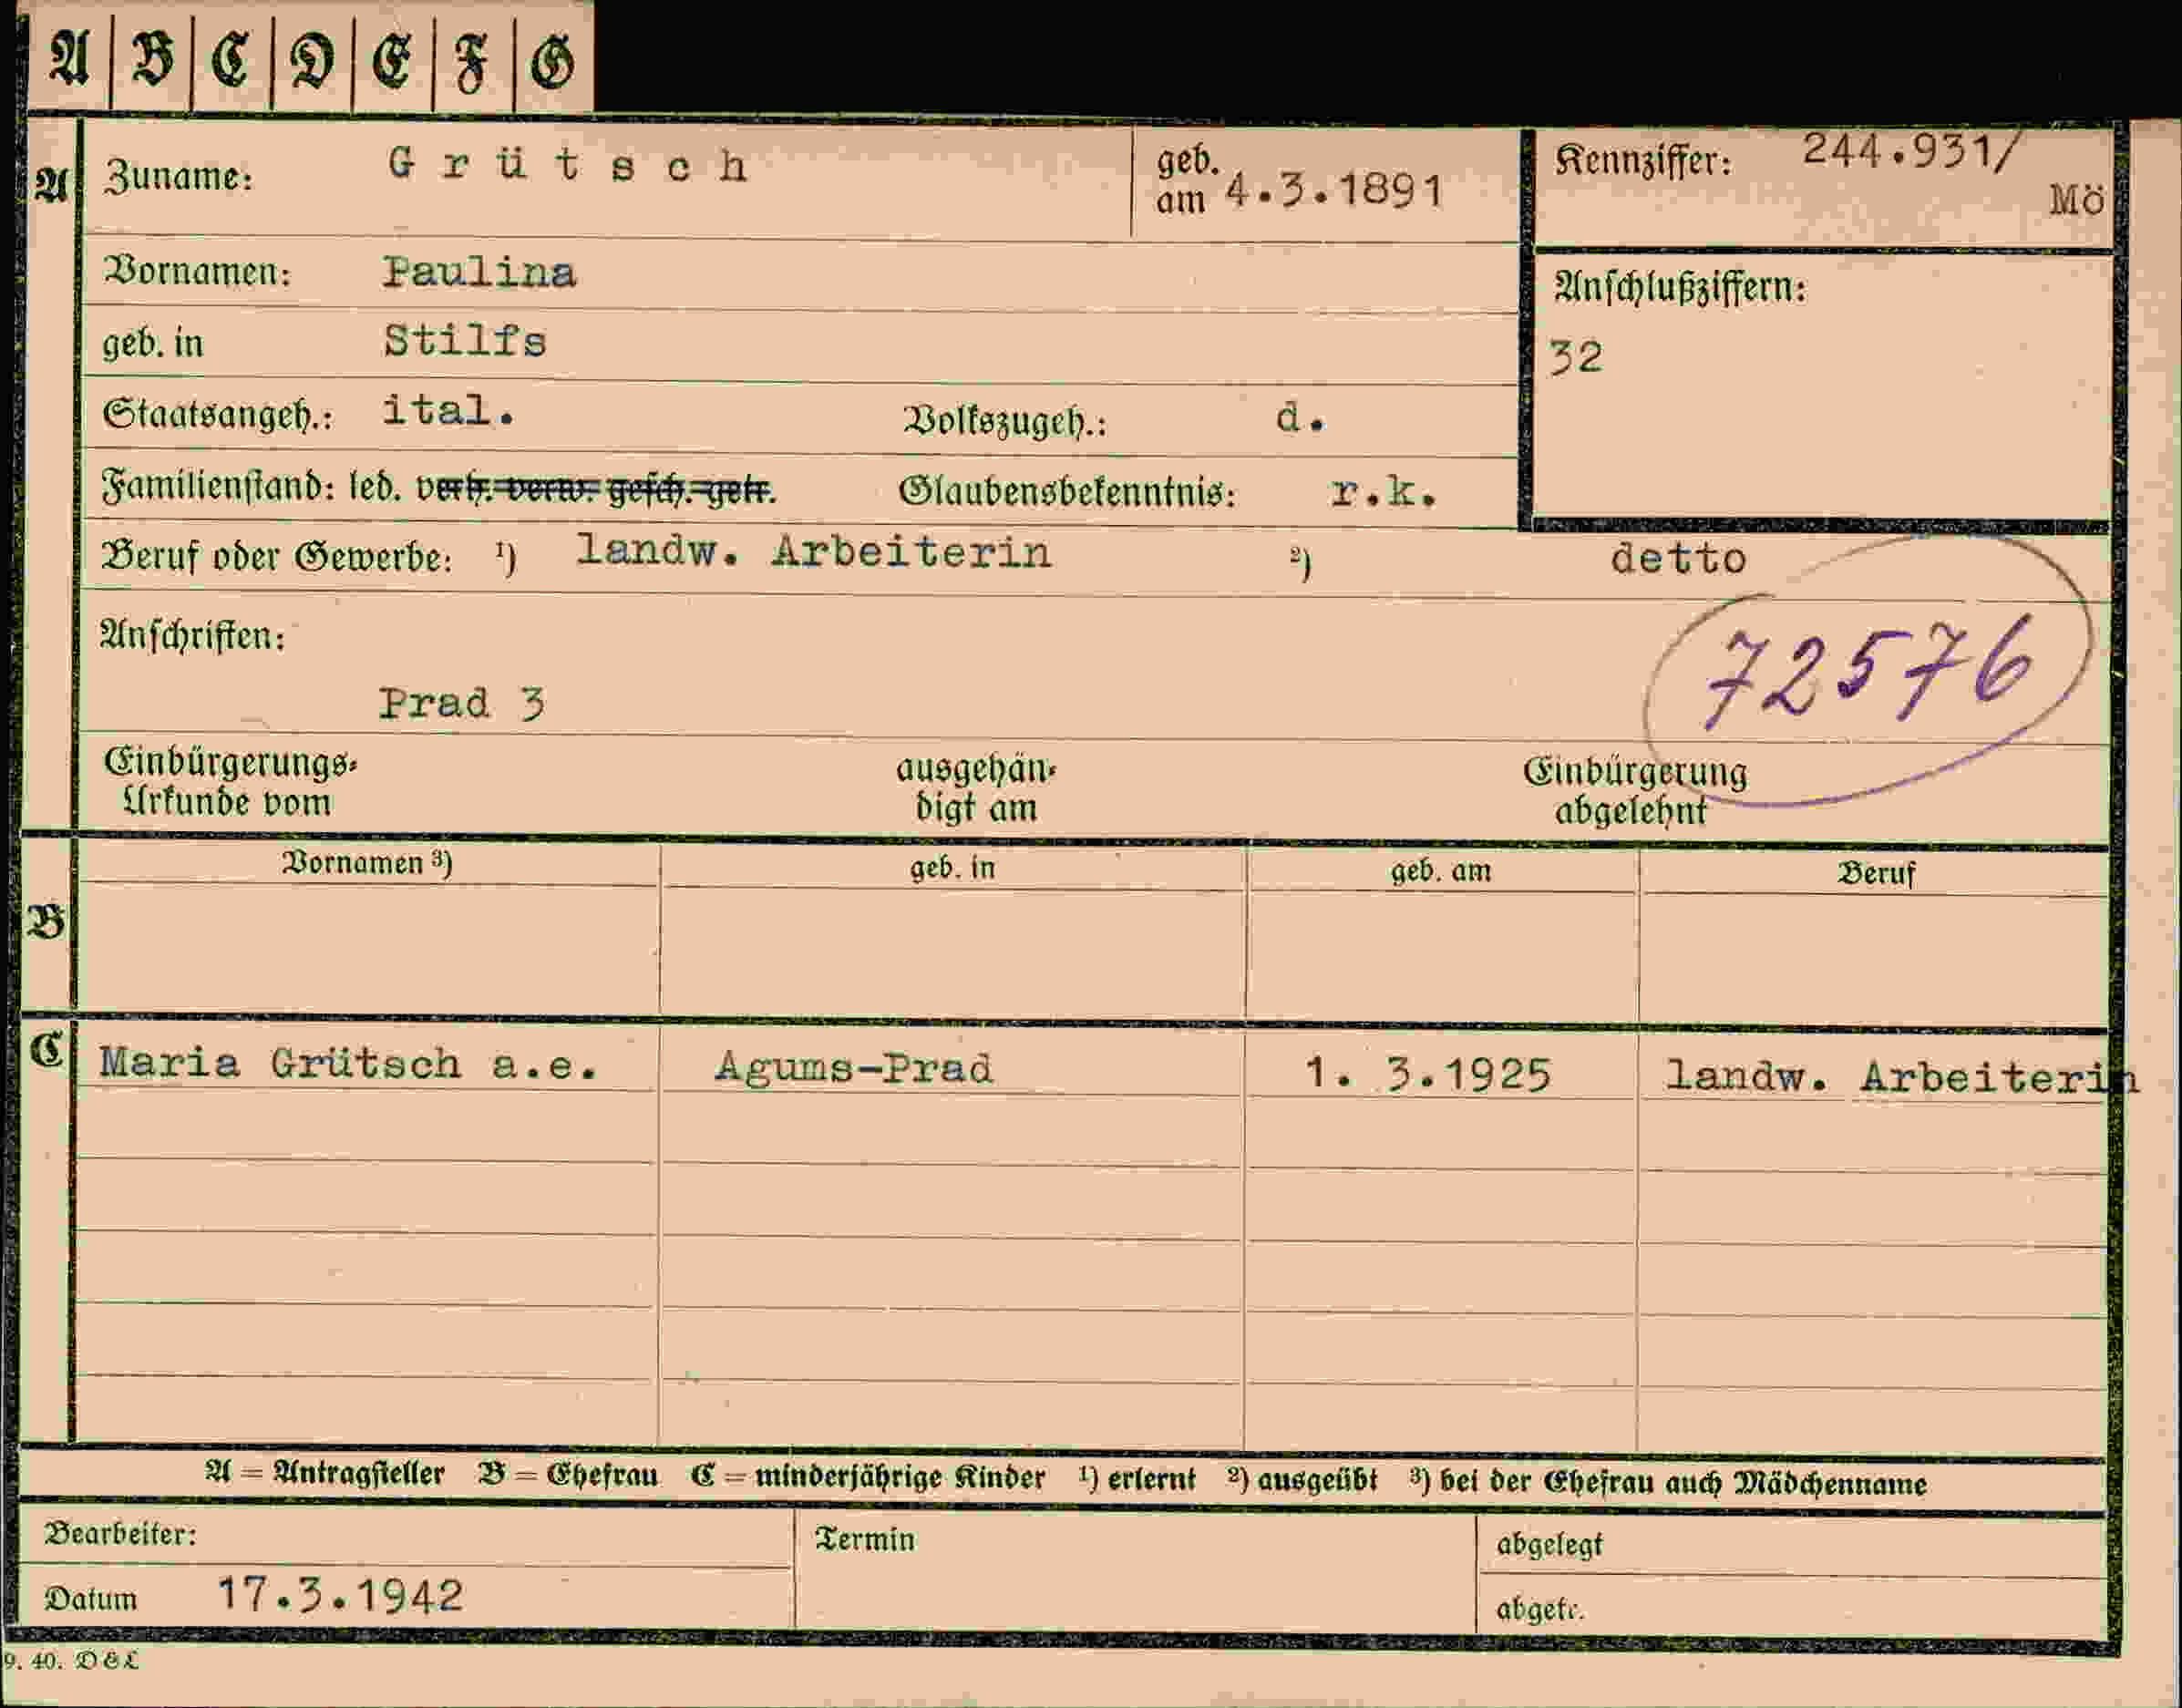 A B C D E F G
A Zuname: Grütsch geb. am 4.3.1891 Kennziffer: 244.931/
Mö
Vornamen: Paulina
Anschlußziffern:
geb. in Stilfs
32
Staatsangeh.: ital. Volkszugeh.: d.
Familienstand: led. verh. verw. gesch. getr. Glaubensbekenntnis: r.k.
Beruf oder Gewerbe: ¹) landw. Arbeiterin ²) detto
Anschriften:
72576
Prad 3
Einbürgerungs- ausgehän- Einbürgerung
Urkunde vom digt am abgelehnt
Vornamen ³) geb. in geb. am Beruf
B
C Maria Grütsch a.e. Agums-Prad 1. 3.1925 landw. Arbeiterin
A = Antragsteller B = Ehefrau C = minderjährige Kinder ¹) erlernt ²) ausgeübt ³) bei der Ehefrau auch Mädchenname
Bearbeiter: Termin abgelegt
Datum 17.3.1942 abgetr.
9. 40. D & L